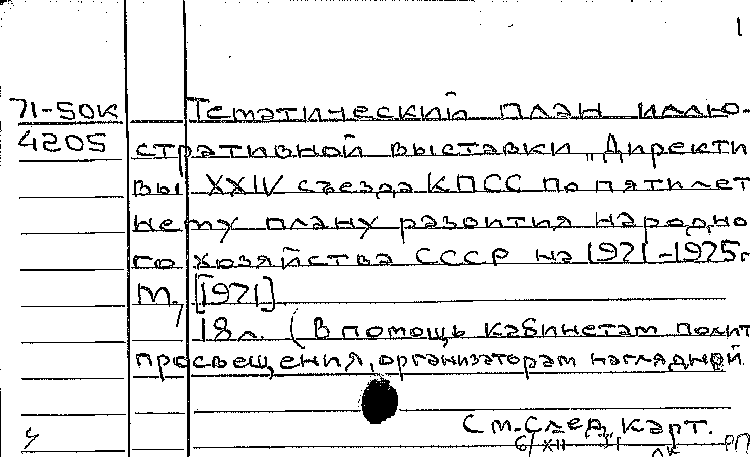 1
71-50к Тематический план иллю-
4205 стративной выставки „Директи
вы XXIV съезда КПСС по пятилет
нему плану развития народно
го хозяйства СССР на 1971-1975г
М., [1971]
18л. (В помощь кабинетам полит
просвещения, организаторам наглядной
См. след. карт.
6/XII